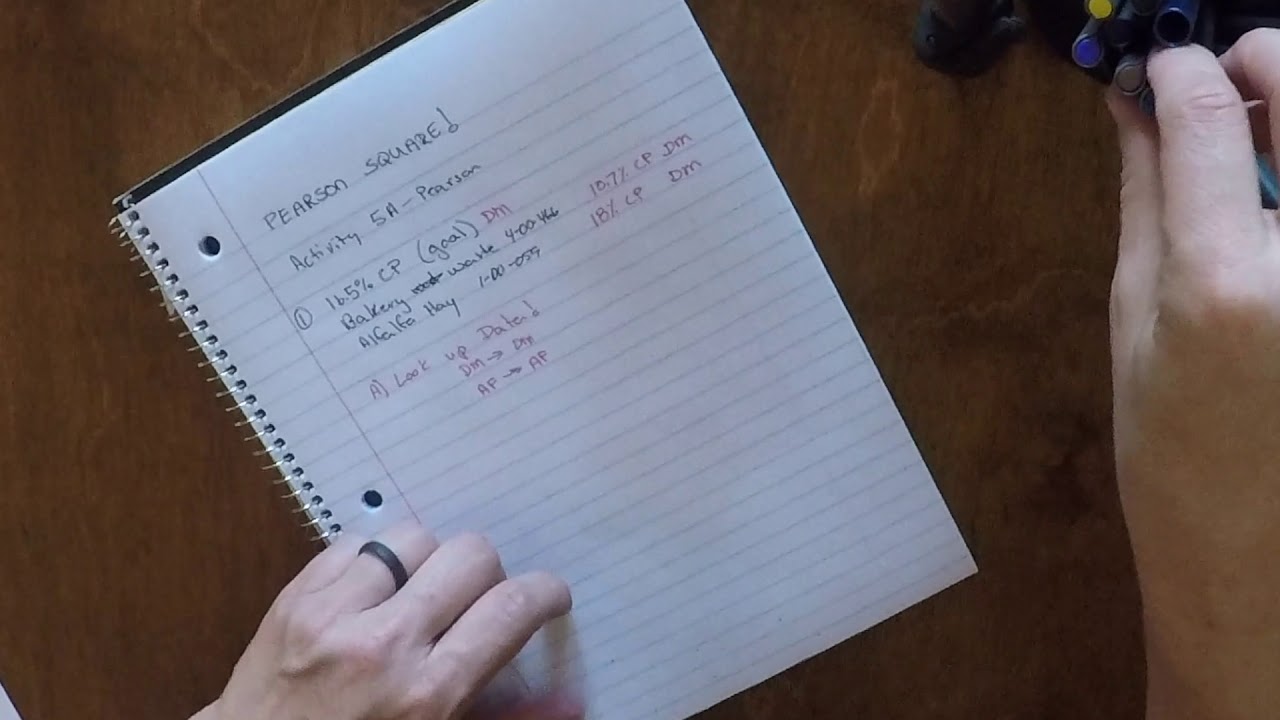 PEARSON SQUARE!
Activity 5A - Pearson
① 16.5% CP (goal) DM
Bakery waste 4-00-466 10.7% CP DM
Alfalfa Hay 1-00-059 18% CP DM
A) Look up Data!
DM → DM
AP → AP